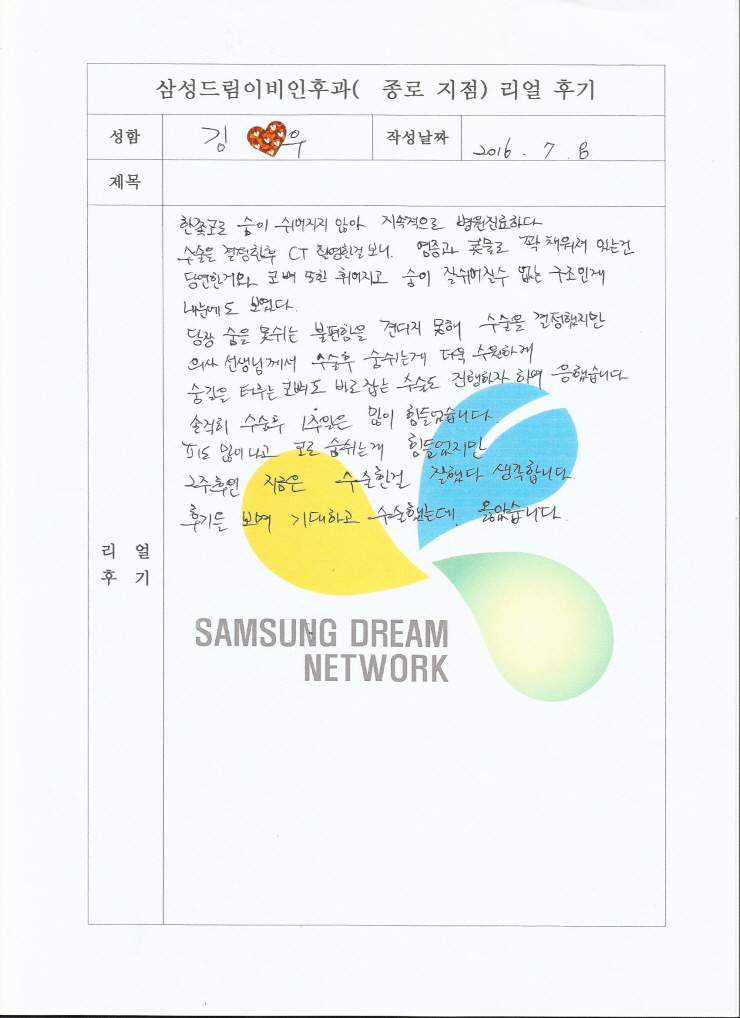 삼성드림이비인후과( 종로 지점) 리얼 후기
성함 김 우 작성날짜 2016. 7. 8
제목
한쪽코로 숨이 쉬어지지 않아 지속적으로 병원진료하다
수술을 결정한후 CT 촬영한걸 보니. 염증과 콧물로 꽉 채워져 있는건
당연한거와 코뼈 또한 휘어지고 숨이 잘쉬어질수 없는 구조인게
내눈에도 보였다.
당장 숨을 못쉬는 불편함을 견디지 못해 수술을 결정했지만
의사 선생님께서 수술후 숨쉬는게 더욱 수월하게
숨길을 터주는 코뼈도 바로잡는 수술도 진행하자 하여 응했습니다
솔직히 수술후 1주일은 많이 힘들었습니다.
피도 많이나고 코로 숨쉬는게 힘들었지만
2주후인 지금은 수술한걸 잘했다 생각합니다.
후기들 보며 기대하고 수술했는데. 옳았습니다.
리 얼
후 기
SAMSUNG DREAM
NETWORK